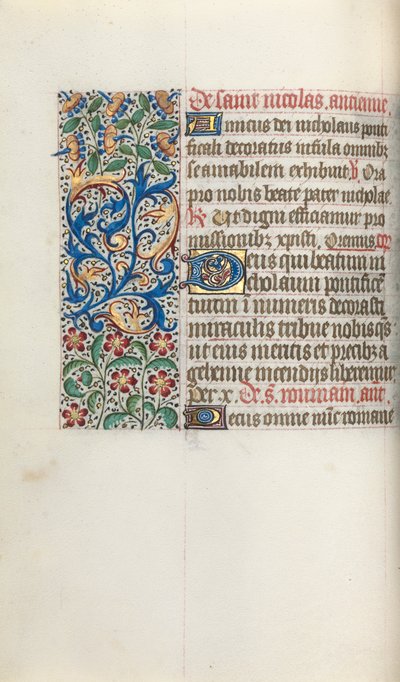 De saint nicolas. antienne.
Amicus dei nicholaus ponti
ficali decoratus infula omnibz
se amabilem exhibuit. v Ora
pro nobis beate pater nicholae.
R Ut digni efficiamur pro
missionibz xpisti. Oremus. or
Deus qui beatum ni
cholaum pontificem
tuum innumeris decorasti
miraculis tribue nobis qs
ut eius meritis et precibz a
gehenne incendijs liberemur
per x. De s. rommain. ane.
Decus omne nunc romane